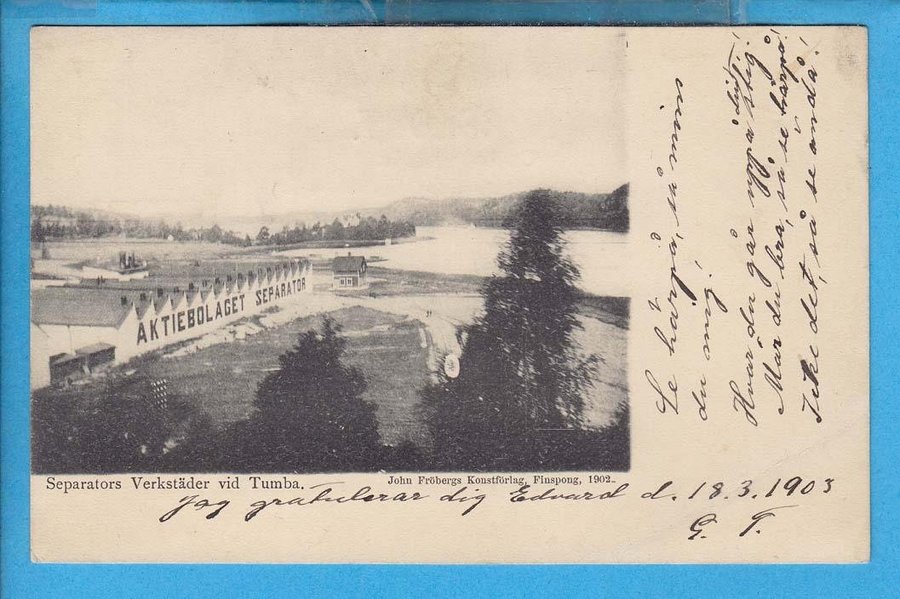 AKTIEBOLAGET SEPARATOR
Separators Verkstäder vid Tumba.
John Fröbergs Konstförlag, Finspong, 1902.
Jag gratulerar dig Edvard d. 18.3.1903
G. T.
Se härpå, så min
du mig!
Hvar du går uppå stig!
Mår du bra, så se härpå!
Icke det, så se ändå!